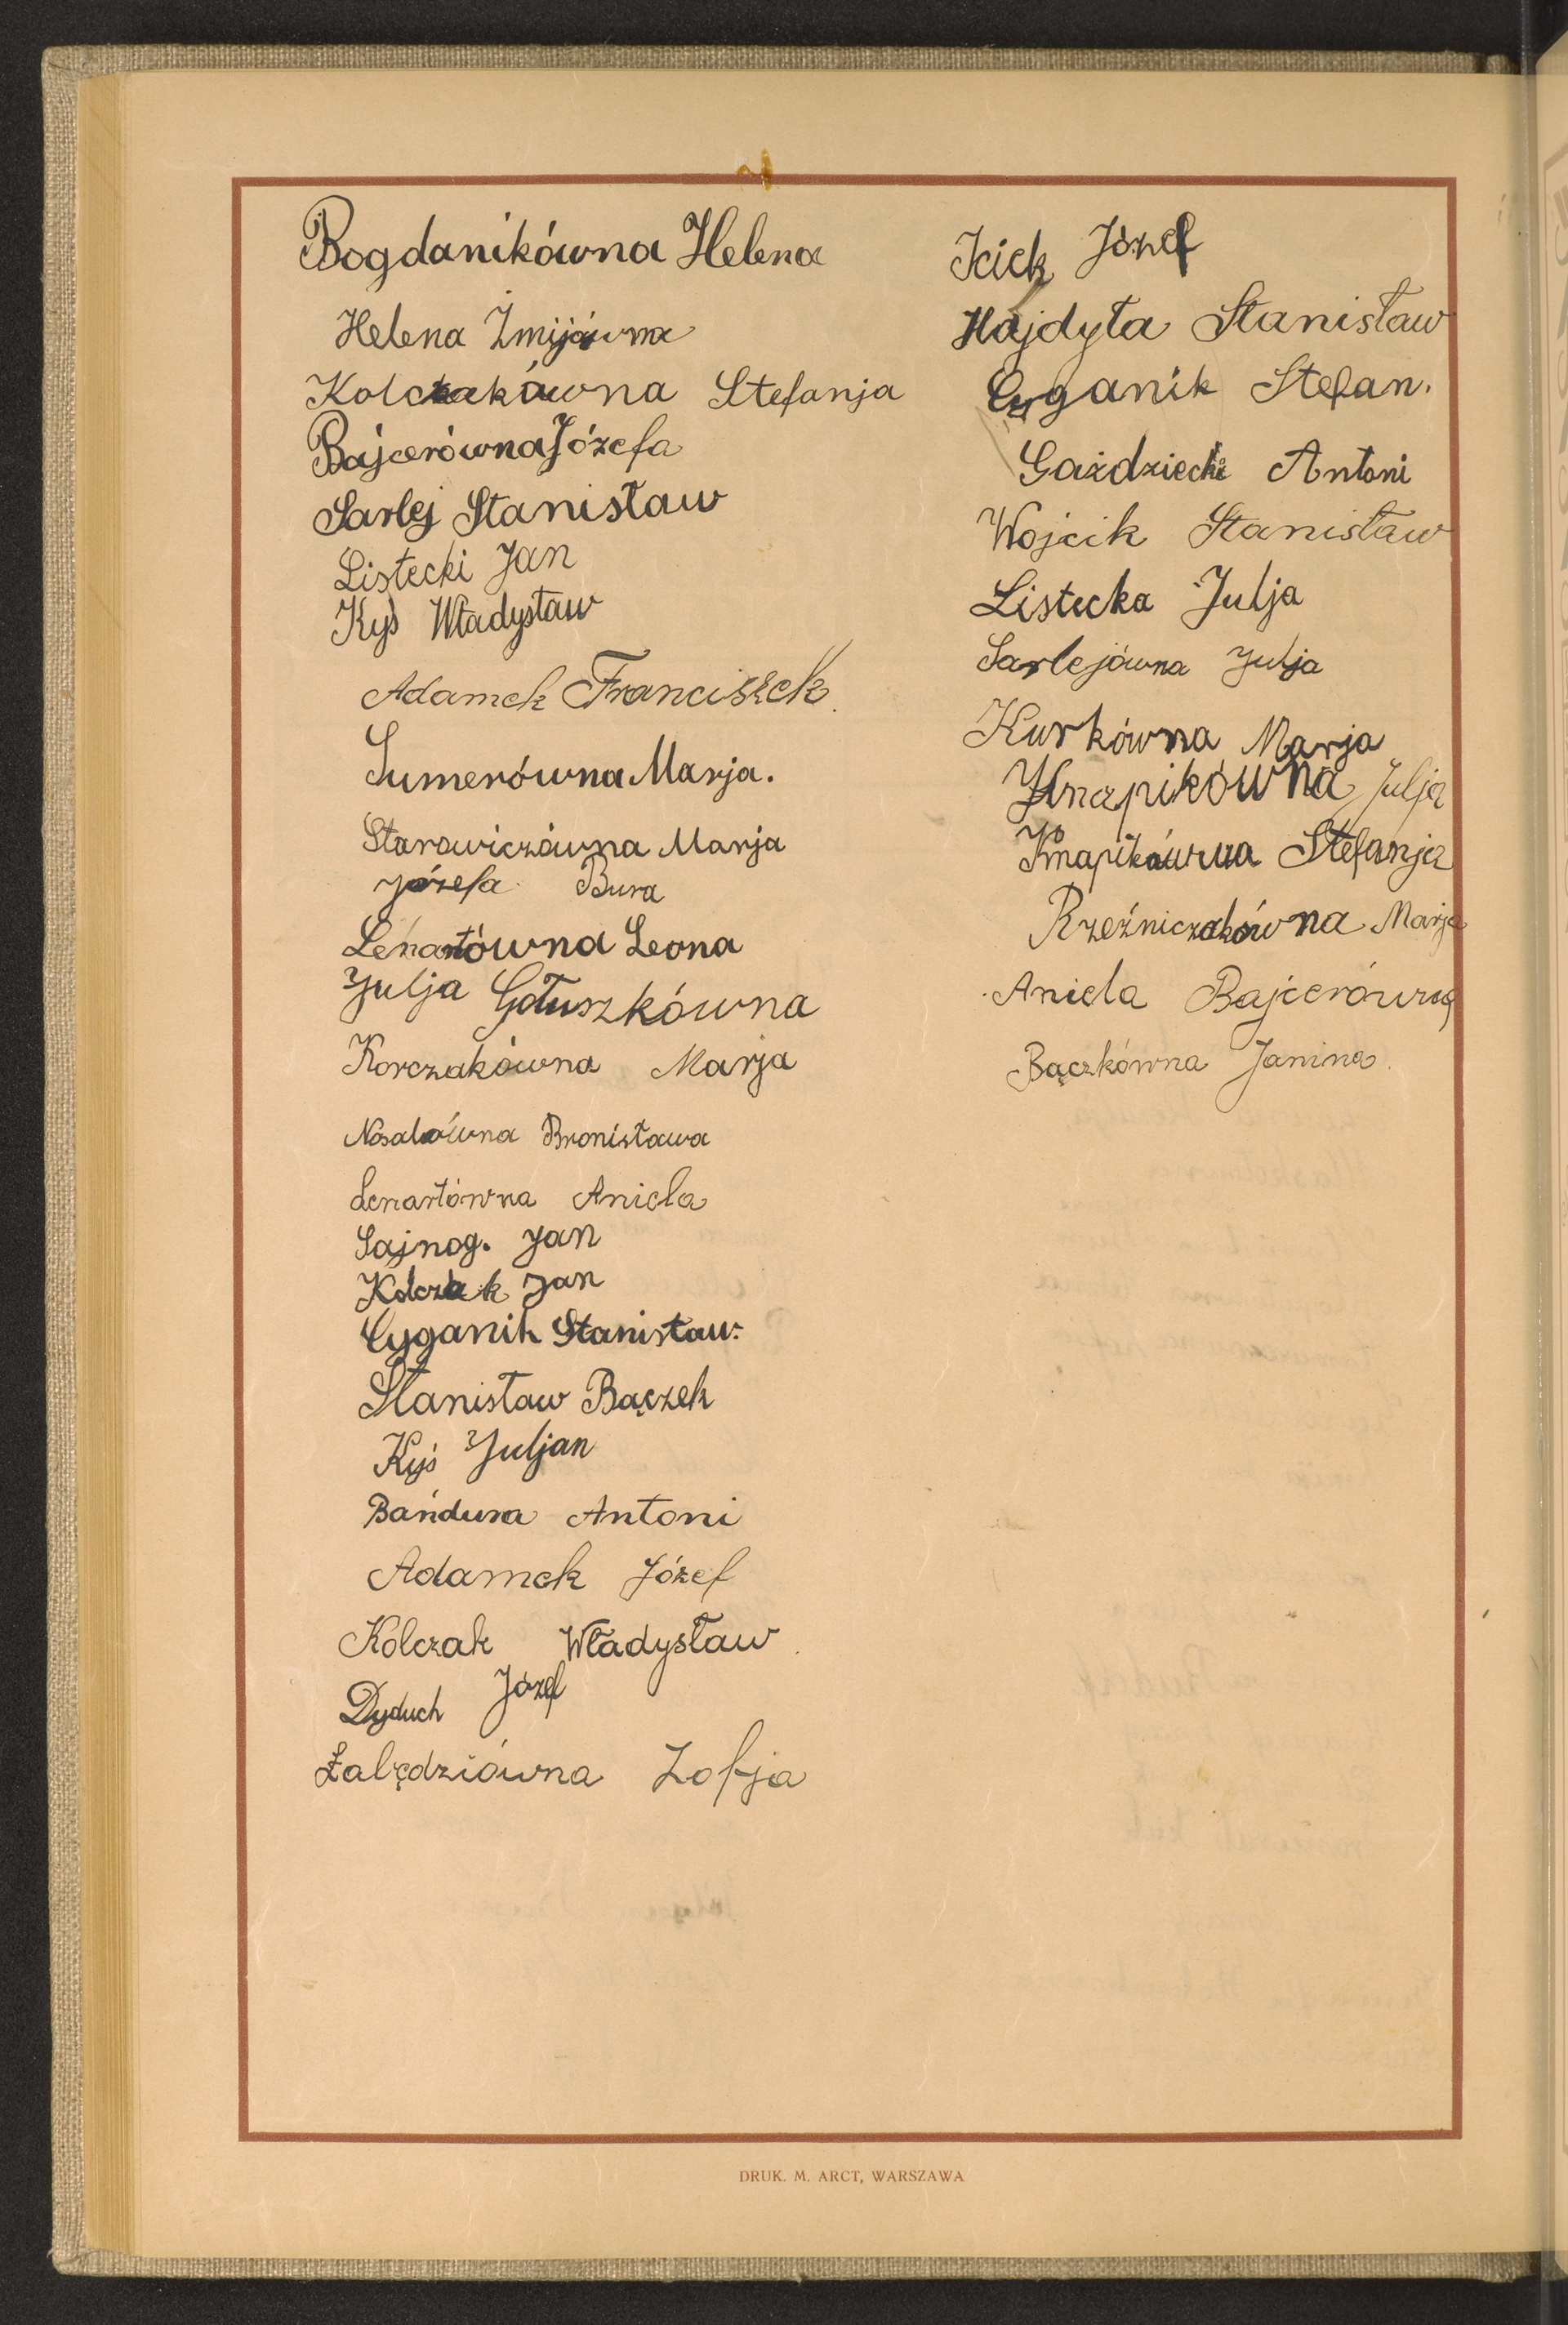 Bogdanikówna Helena
Helena Żmijówna
Kolczakówna Stefanja
Bajcerówna Józefa
Sarlej Stanisław
Listecki Jan
Kyś Władysław
Adamek Franciszek.
Sumerówna Marja.
Starowiczówna Marja
Józefa Bura
Lenartówna Leona
Julja Gołuszkówna
Korczakówna Marja
Nosalówna Bronisława
Lenartówna Aniela
Sajnog. Jan
Kolczak Jan
Cyganik Stanisław.
Stanisław Bączek
Kyś Juljan
Bańdura Antoni
Adamek Józef
Kolczak Władysław
Dyduch Józef
Łabędziówna Zofja
Kick Józef
Hajdyła Stanisław
Cyganik Stefan.
Gaździecki Antoni
Wojcik Stanisław
Listecka Julja
Sarlejówna Julja
Kurkówna Marja
Knapikówna Julja
Knapikówna Stefanja
Rzeźniczakówna Marja
Aniela Bajcerówna
Bączkówna Janina.
DRUK. M. ARCT, WARSZAWA